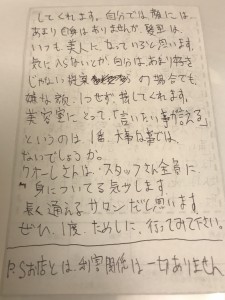 してくれます。自分では、顔には、
あまり自信はありませんが、髪型は、
いつも美人になっていると思います。
気に入らないとか、自分は、あまり好き
じゃない提案 の場合でも、
嫌な顔、1つせず、接してくれます。
美容室にとって、「言いたい事が言える」
というのは、1番、大事な事では、
ないでしょうか。
クオーレさんは、スタッフさん全員に、
身についてる気がします。
長く通えるサロンだと思います。
ぜひ、1度、ためしに、行ってみて下さい。
P.Sお店とは、利害関係は一切ありません